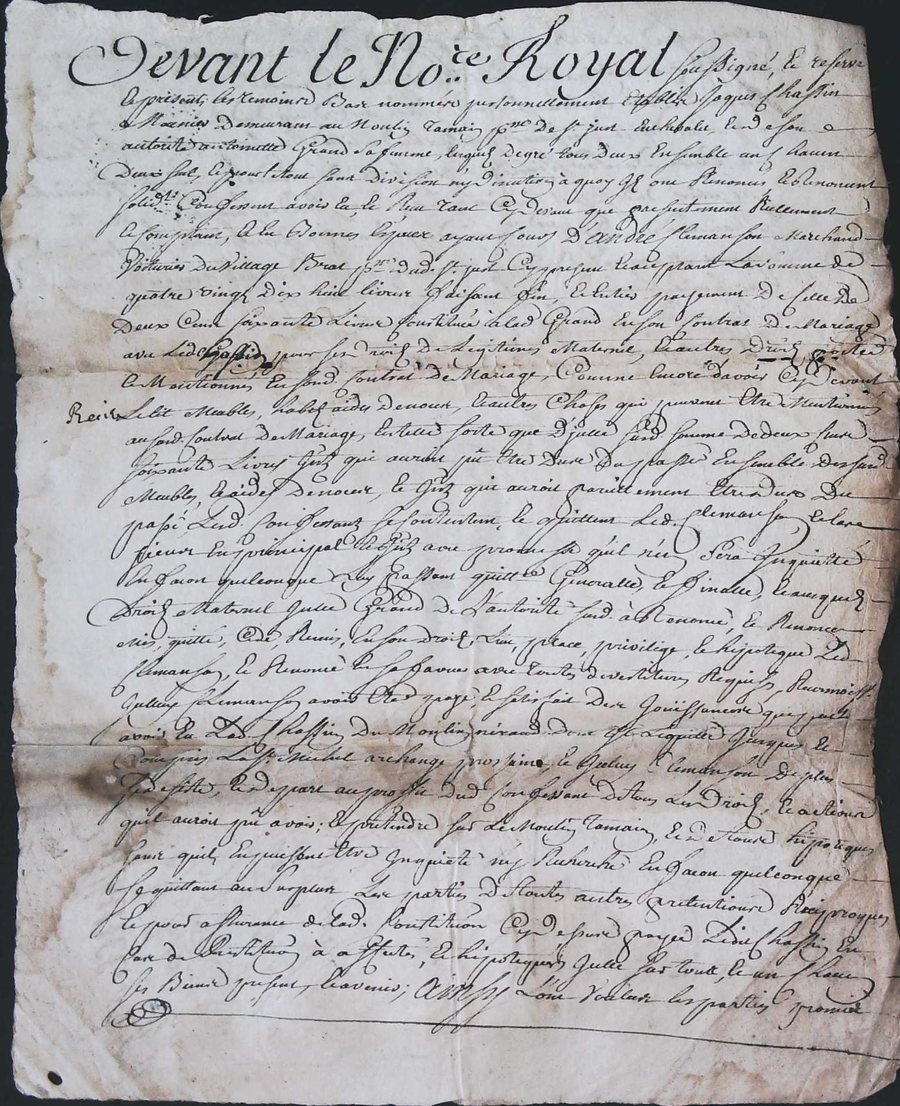 Devant le No.re Royal soussigné, et reservé
et presents les temoins Bas nommés personnellement establis Jaques Chassin
Meunier demeurant au Moulin Tamain p.sse de St just en chevalet, et de son
autorité antoinette Grand sa femme, lesquels de gré tous deux Ensemble un chacun
Deux seul, et pour le tout sans division ny discution à quoy ils ont Renoncé et Renoncent
solid.t Confessent avoir Eu, et Reçu tant Cydevant que presentement Réellement
et comptant, et En Bonnes Especes ayant Cours D'andré Clemanson Marchand
Voiturier du Village Brat p.sse dud. St just Cy present et acceptant La somme de
quatre vingt dix huit livres faisant fin, et Entier payement De celle De
Deux Cent soixante Livres Constituée à lad. Grand En son Contrat De Mariage
avec Led. Chassin pour ses droits De Legitimes Maternel, et autres Droits
et Mentionnés En sond. Contrat De Mariage, Comme Encore d'avoir Cy devant
Reçu Le lit Meubles, habits aides de noces, et autres Choses qui peuvent Etre Mentionnés
au susd. Contrat De Mariage, En telle sorte que D'jcelle susd. somme De deux Cent
soixante Livres que qui auront pu Etre Dus Du passé Ensemble des susd.
Meubles, et aides De noces, et qui auroit pareillement Etre dus Du
passé Lesd. Confessants se Contentent, et quittent Led. Clemanson et les
sieurs En principal avec promesse qu'il n'en Sera Inquietté
En facon quelconque Luy passant quitte Generalle, et finalle, et auxquels
Droits Maternel Jcelle Grand de L'autorité susd. à Renoncé, et Renonce
Mis, quitté, Cedé, Remis, En son droit, Lieu, place, privilege, et hipoteque Led.
Clemanson, et Renoncé En sa faveur avec toutes devestitures Requises, Reconnoiss.t
Jcelluy Clemanson avoir Eté payé, et satisfait des Jouissances que peut
avoir Eu Led. Chassin Du Moulin Jusques Et
Compris La St Michel archange prochaine, et Jceluy Clemanson De plus
Se desiste, et depart au proffit Dud. Confessant De tous Les Droits, et actions
qu'il auroit pu avoir, et pretendre sur Le Moulin Tamain, et De toutes hipoteques
sans qu'il En puissent Etre Inquieté ny Recherché En facon quelconque
Se quittant au surplus Les parties De toutes autres pretentions Reciproques
Et pour assurance de lad. Constitution Cy dessus payée Ledit Chassin En
Cas de Restitution à affecté, et hipotequé Jcelle sur tous, et un Chacun
ses Biens presents, et avenir; ainsy L'ont Voulu les parties promis